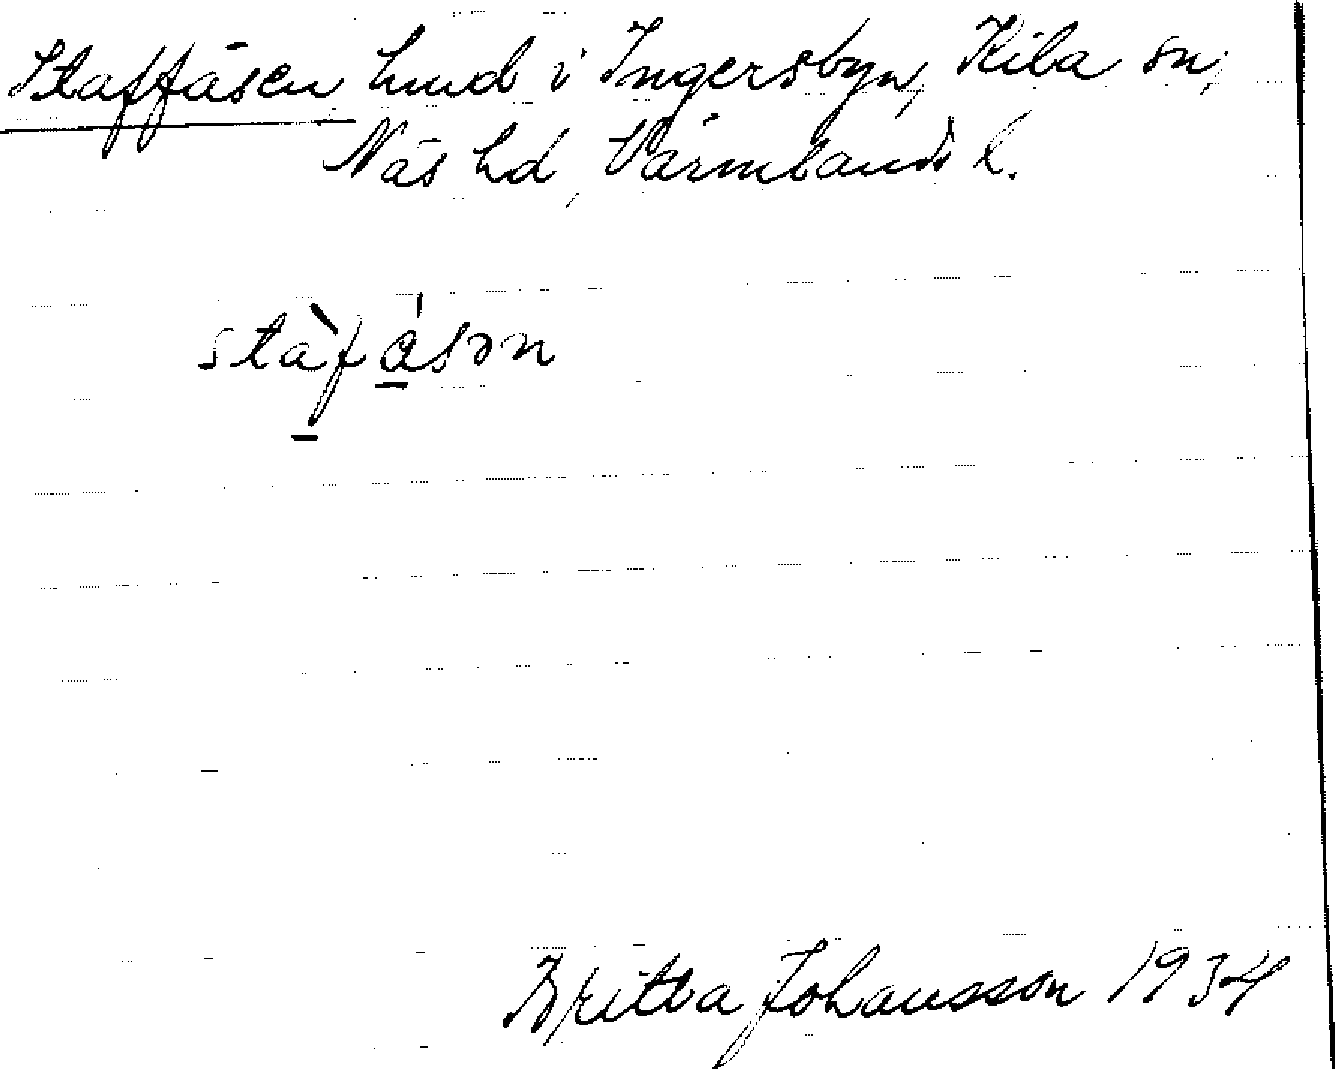 Staffåsen lund i Ingersbyn, Kila sn,
Näs hd, Värmlands l.
stàfåsən
Britta Johansson 1934